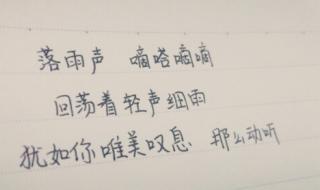 落雨声 嘀嗒嘀嘀
回荡着轻声细雨
犹如你唯美叹息 那么动听